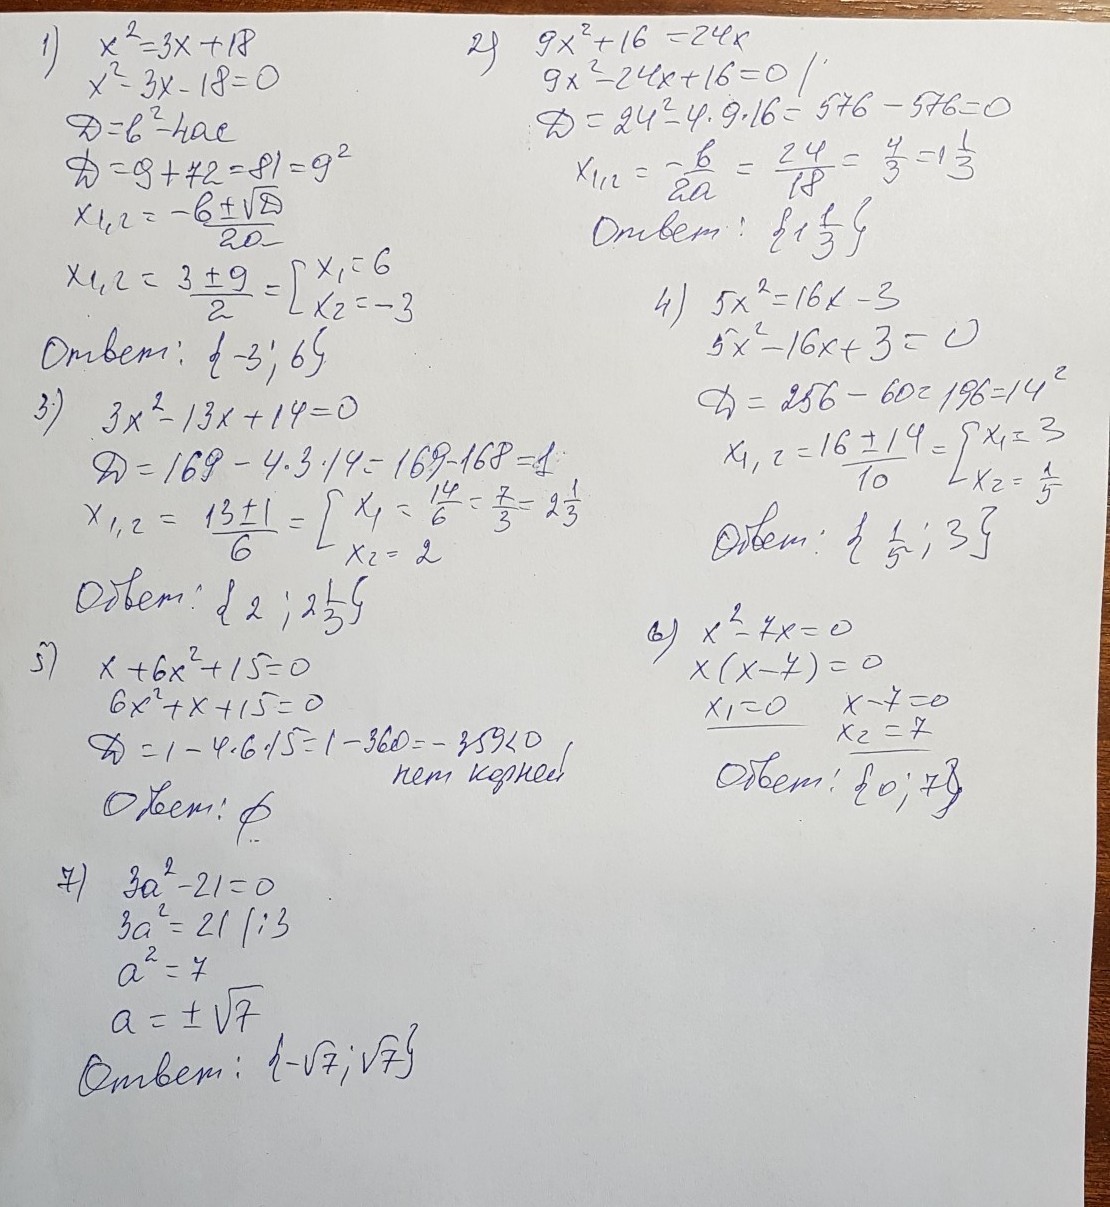 1) x²=3x+18
x²-3x-18=0
D=b²-4ac
D=9+72=81=9²
x₁,₂ = -b±√D/2a
x₁,₂ = 3±9/2 = [x₁=6
x₂=-3
Ответ: {-3; 6}
2) 9x²+16=24x
9x²-24x+16=0 /
D = 24²-4·9·16 = 576-576=0
x₁,₂ = -b/2a = 24/18 = 4/3 = 1 1/3
Ответ: {1 1/3}
3) 3x²-13x+14=0
D=169-4·3·14=169-168=1
x₁,₂ = 13±1/6 = [x₁ = 14/6 = 7/3 = 2 1/3
x₂=2
Ответ: {2; 2 1/3}
4) 5x²=16x-3
5x²-16x+3=0
D=256-60=196=14²
x₁,₂ = 16±14/10 = {x₁=3
x₂=1/5
Ответ: {1/5; 3}
5) x+6x²+15=0
6x²+x+15=0
D=1-4·6·15=1-360=-359<0
нет корней
Ответ: ∅
6) x²-7x=0
x(x-7)=0
x₁=0 x-7=0
x₂=7
Ответ: {0; 7}
7) 3a²-21=0
3a²=21 /:3
a²=7
a=±√7
Ответ: {-√7; √7}